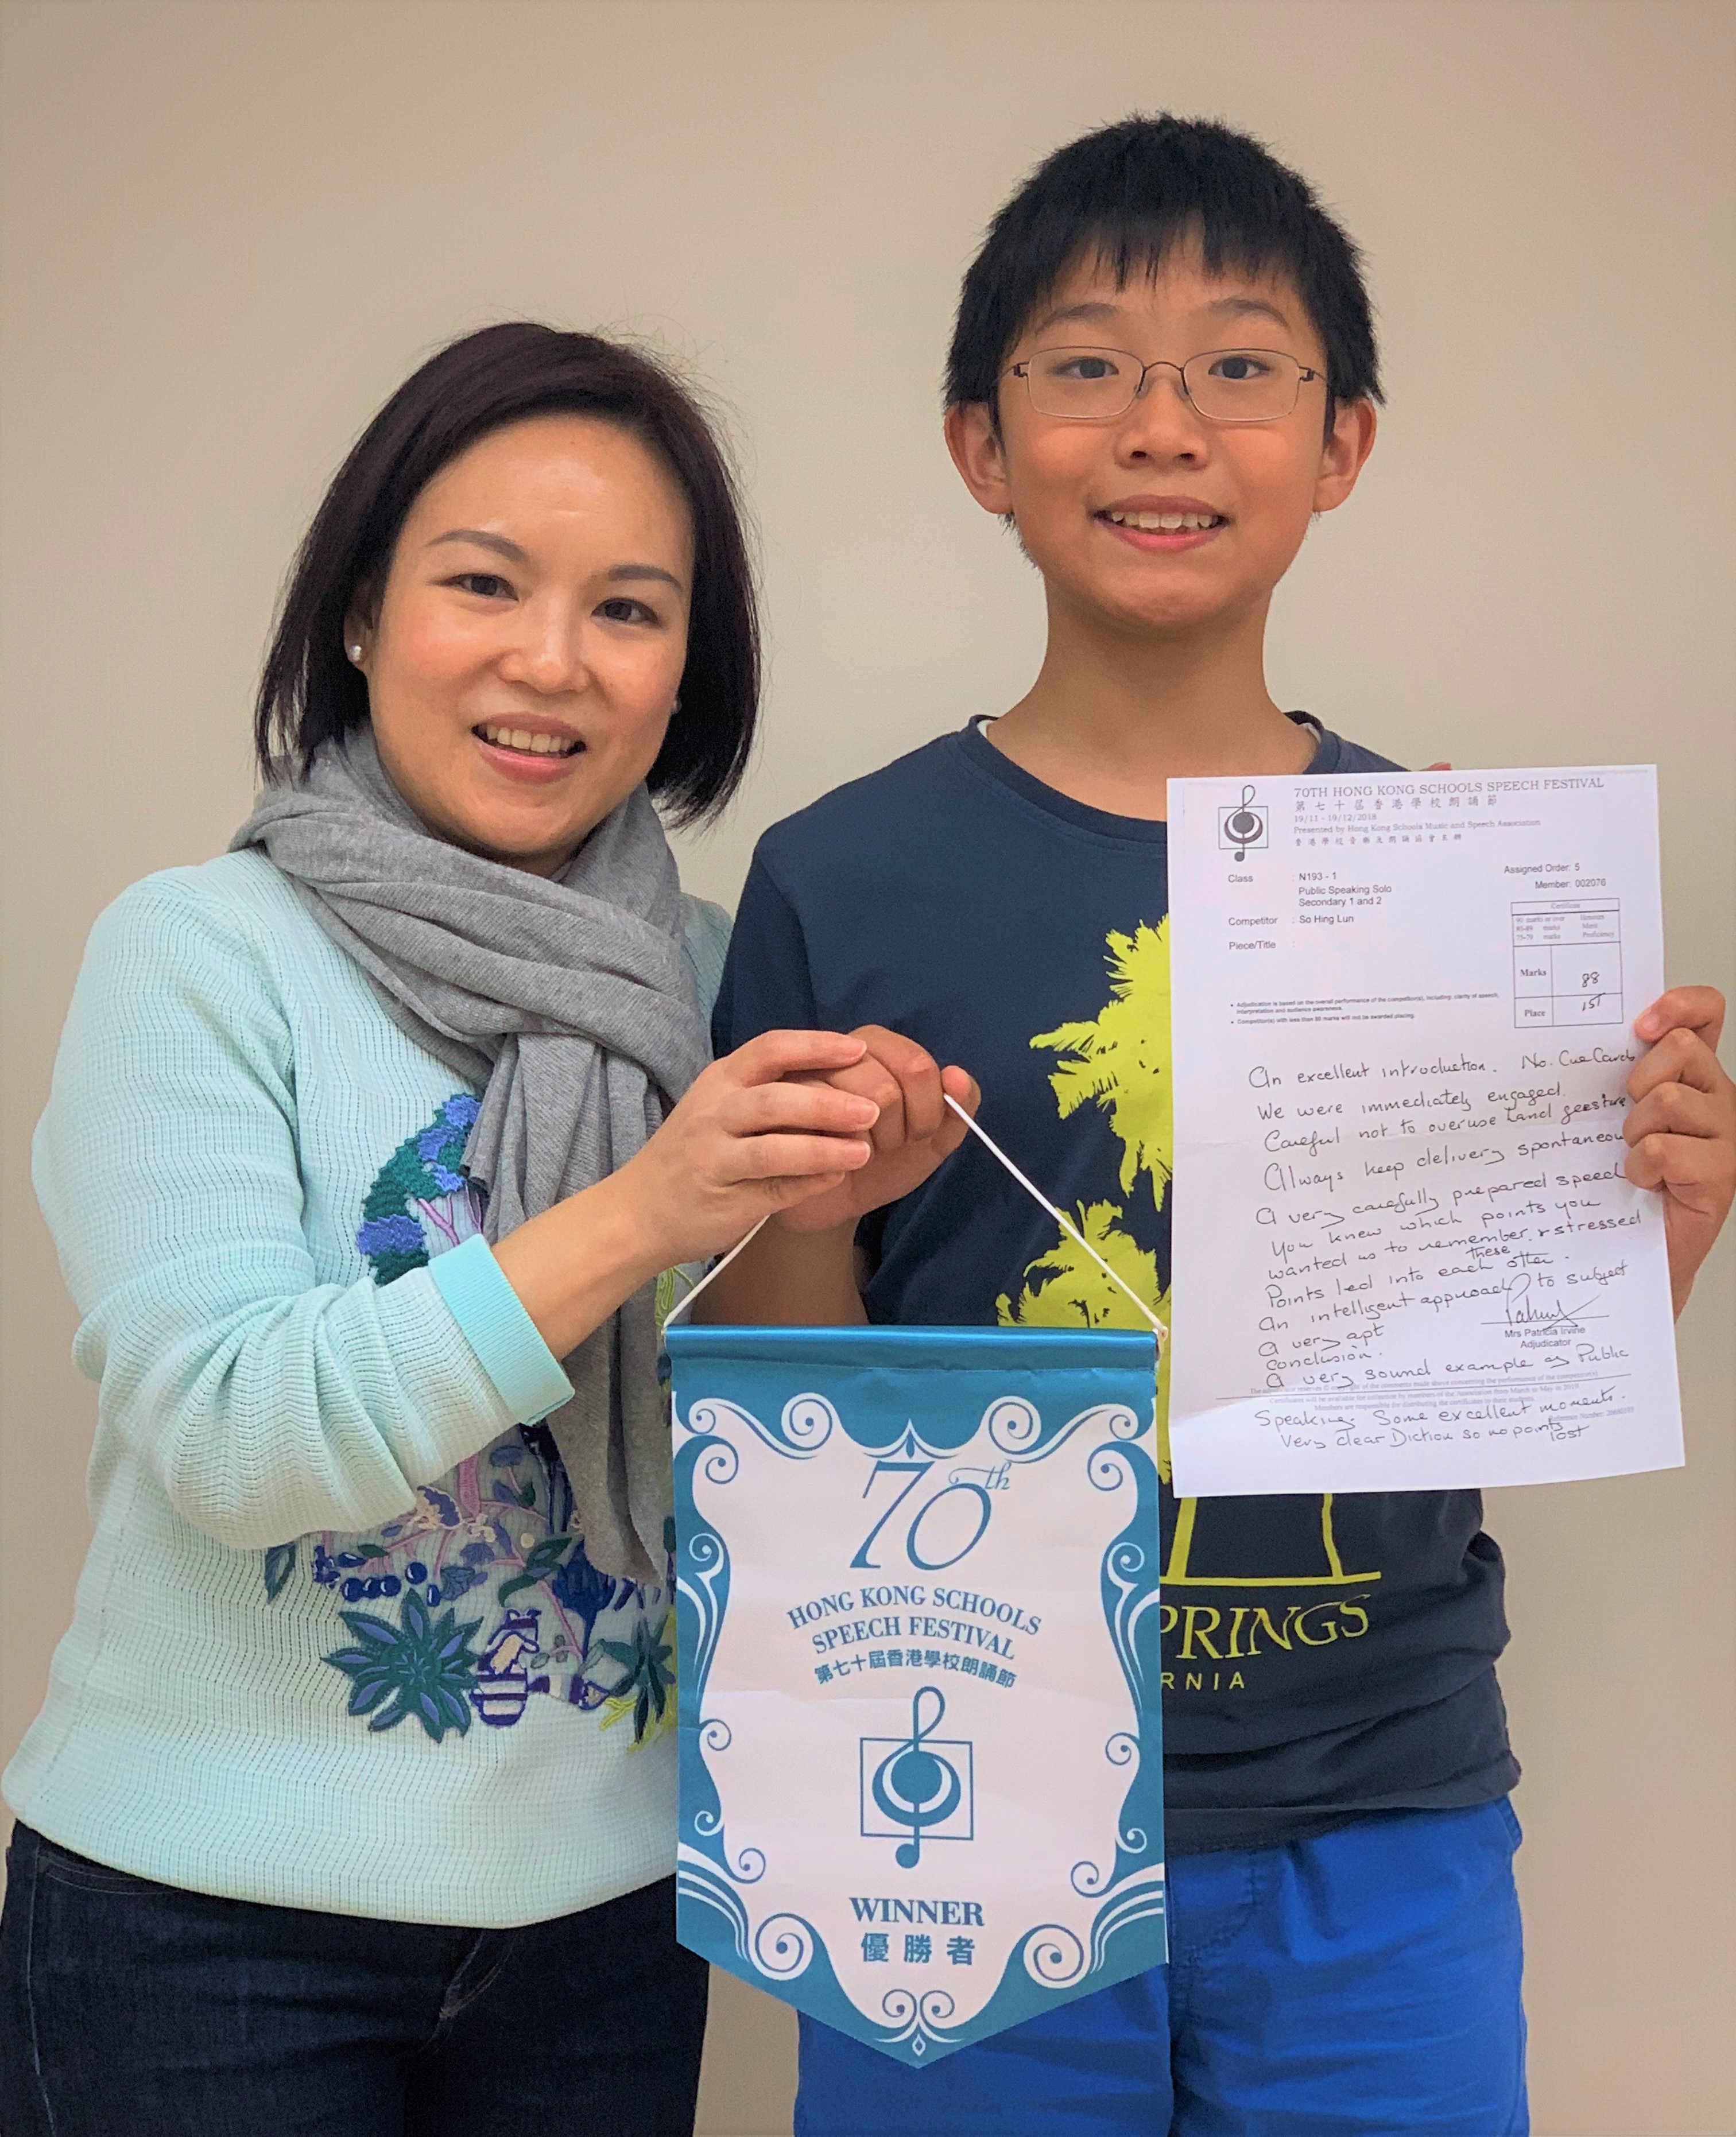 70TH HONG KONG SCHOOLS SPEECH FESTIVAL
第七十屆香港學校朗誦節
19/11 - 19/12/2018
Presented by Hong Kong Schools Music and Speech Association
香港學校音樂及朗誦協會主辦
Assigned Order: 5
Member: 002076
Class : N193 - 1
Public Speaking Solo
Secondary 1 and 2
Competitor : So Hing Lun
Piece/Title :
Certificate
90 marks or over Honours
85-89 marks Merit
75-79 marks Proficiency
Marks 88
Place 1st
• Adjudication is based on the overall performance of the competitor(s), including: clarity of speech, interpretation and audience awareness.
• Competitor(s) with less than 80 marks will not be awarded placing.
An excellent introduction. No. Cue Cards
We were immediately engaged.
Careful not to overuse hand gesture
Always keep delivery spontaneou
A very carefully prepared speech
You knew which points you
wanted us to remember & stressed
these
Points led into each other.
An intelligent approach to subject
A very apt
conclusion.
Mrs Patricia Irvine
Adjudicator
A very sound example of Public
Speaking. Some excellent moments.
Very clear Diction so no points
lost
70th
HONG KONG SCHOOLS
SPEECH FESTIVAL
第七十屆香港學校朗誦節
WINNER
優勝者
PRINGS
RNIA